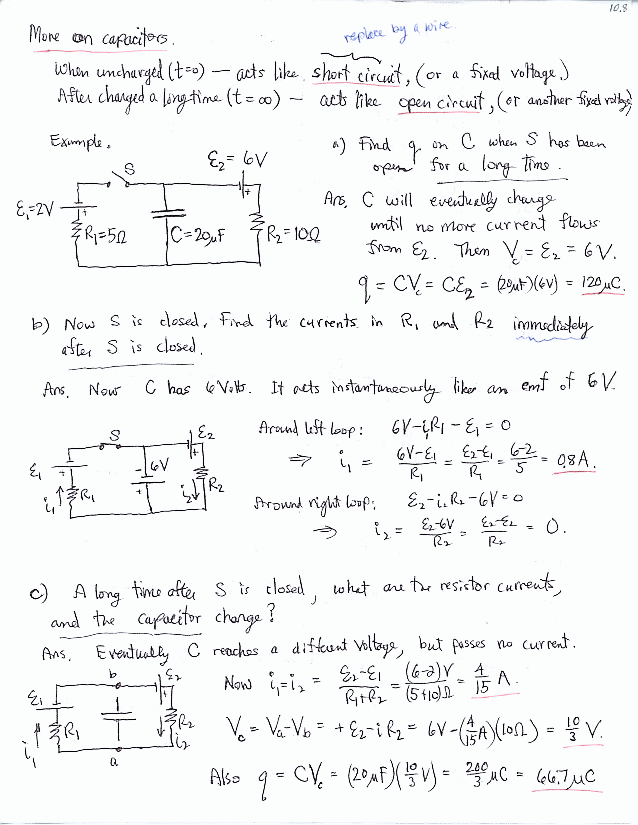 10.8
More on capacitors.
replace by a wire.
When uncharged (t=0) — acts like short circuit, (or a fixed voltage.)
After charged a long time (t=∞) — acts like open circuit, (or another fixed voltage)
Example.
S
ℰ₂ = 6V
ℰ₁=2V
R₁=5Ω
C=20μF
R₂=10Ω
a) Find q on C when S has been
open for a long time.
Ans. C will eventually charge
until no more current flows
from ℰ₂. Then V_c = ℰ₂ = 6V.
q = CV_c = Cℰ₂ = (20μF)(6V) = 120μC.
b) Now S is closed. Find the currents in R₁ and R₂ immediately
after S is closed.
Ans. Now C has 6Volts. It acts instantaneously like an emf of 6V.
S
ℰ₂
ℰ₁
6V
i₁
R₁
i₂
R₂
Around left loop: 6V-i₁R₁-ℰ₁=0
⇒ i₁ = (6V-ℰ₁)/R₁ = (ℰ₂-ℰ₁)/R₁ = (6-2)/5 = 0.8A.
Around right loop: ℰ₂-i₂R₂-6V=0
⇒ i₂ = (ℰ₂-6V)/R₂ = (ℰ₂-ℰ₂)/R₂ = 0.
c) A long time after S is closed, what are the resistor currents,
and the capacitor charge?
Ans. Eventually C reaches a different voltage, but passes no current.
b
ℰ₂
ℰ₁
R₁
R₂
i₁
i₂
a
Now i₁=i₂ = (ℰ₂-ℰ₁)/(R₁+R₂) = (6-2)V/(5+10)Ω = 4/15 A.
V_c = V_a-V_b = +ℰ₂-iR₂ = 6V-(4/15 A)(10Ω) = 10/3 V.
Also q = CV_c = (20μF)(10/3 V) = 200/3 μC = 66.7μC